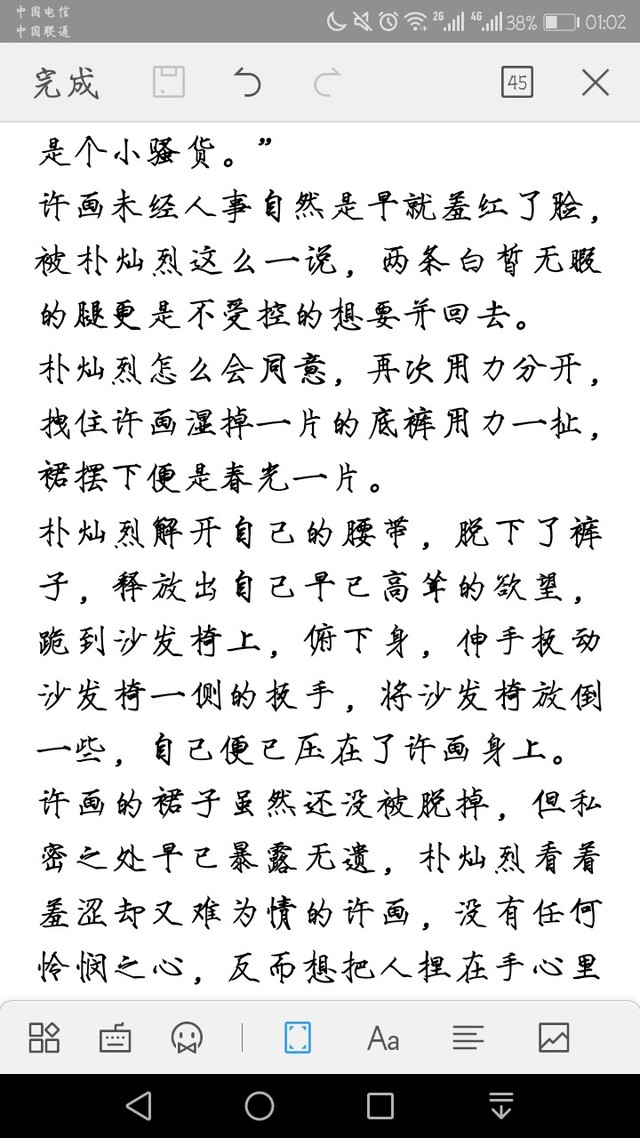 中国电信
中国联通
2G 4G 38% 01:02
完成 45
是个小骚货。”
许画未经人事自然是早就羞红了脸，
被朴灿烈这么一说，两条白皙无暇
的腿更是不受控的想要并回去。
朴灿烈怎么会同意，再次用力分开，
拽住许画湿掉一片的底裤用力一扯，
裙摆下便是春光一片。
朴灿烈解开自己的腰带，脱下了裤
子，释放出自己早已高耸的欲望，
跪到沙发椅上，俯下身，伸手扳动
沙发椅一侧的扳手，将沙发椅放倒
一些，自己便已压在了许画身上。
许画的裙子虽然还没被脱掉，但私
密之处早已暴露无遗，朴灿烈看着
羞涩却又难为情的许画，没有任何
怜悯之心，反而想把人捏在手心里
Aa